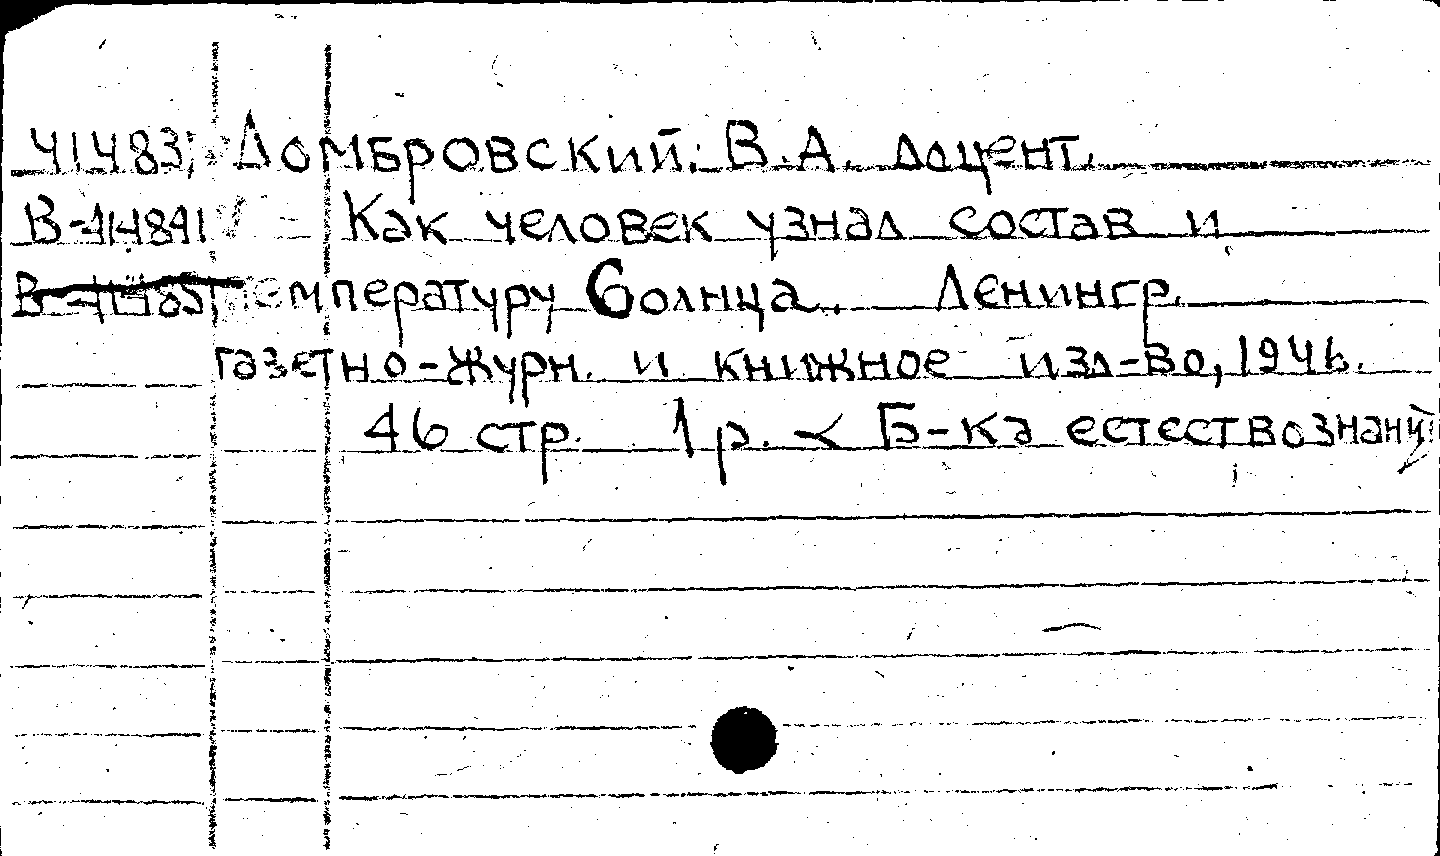 41483; Домбровский. В.А. доцент.
В-414841 Как человек узнал состав и
температуру Солнца. Ленингр.
газетно-журн. и книжное изд-во, 1946.
46 стр. 1 р. < Б-ка естествознани